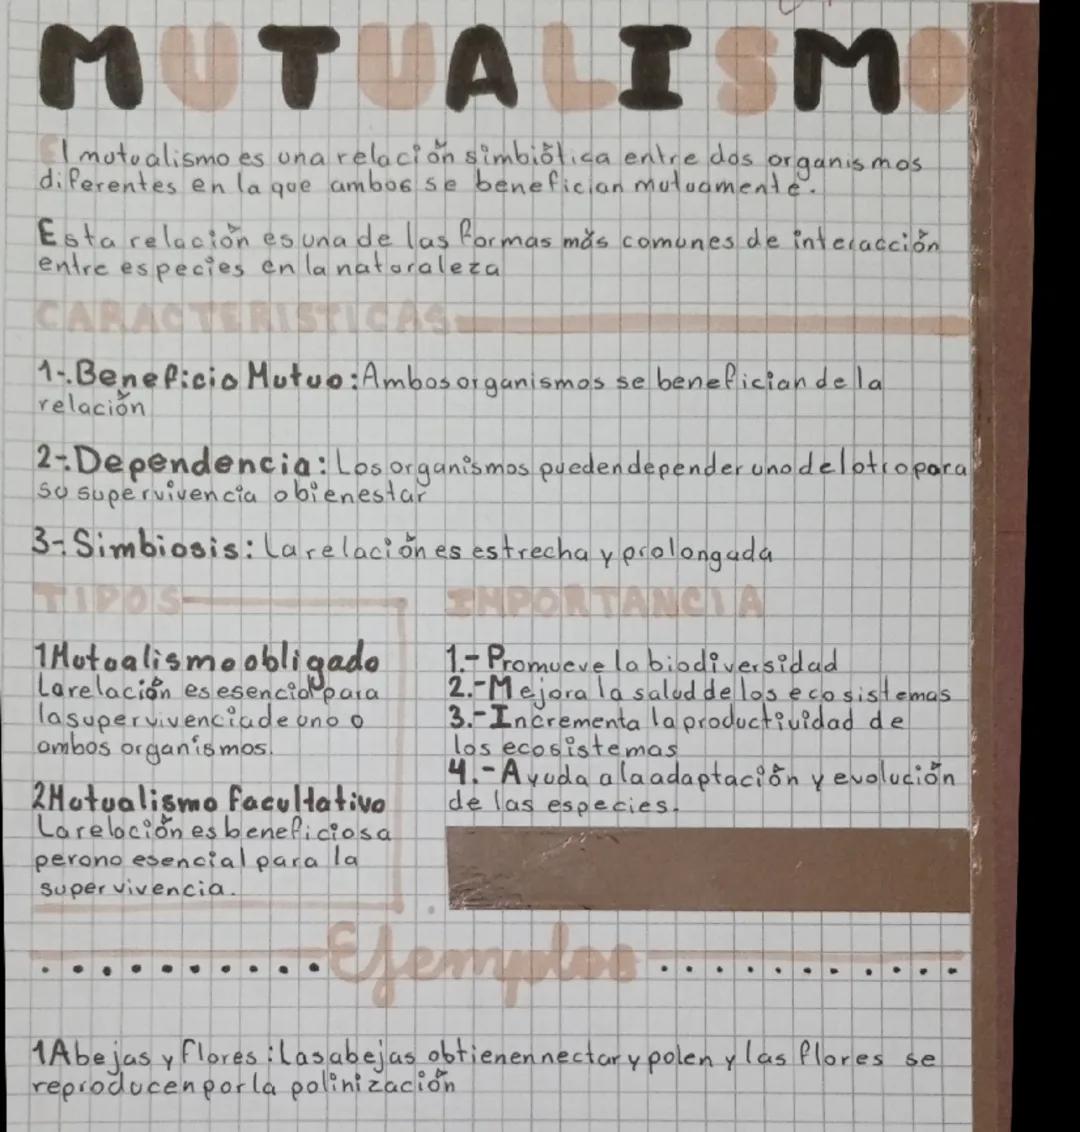 MUTUALISMO
El mutualismo es una relación simbiótica entre dos organismos
diferentes en la que ambos se benefician mutuamente.
Esta relación es una de las formas más comunes de interacción
entre especies en la naturaleza
CARACTERISTICAS
1-.Beneficio Mutuo: Ambos organismos se benefician de la
relación
2-.Dependencia: Los organismos pueden depender uno del otro para
su supervivencia o bienestar
3-.Simbiosis: La relación es estrecha y prolongada
TIPOS
1 Mutualismo obligado
La relación es esencial para
la supervivencia de uno o
ambos organismos.
2 Mutualismo facultativo
La relación es beneficiosa
pero no esencial para la
supervivencia.
IMPORTANCIA
1.- Promueve la biodiversidad
2.- Mejora la salud de los ecosistemas
3.- Incrementa la productividad de
los ecosistemas
4.- Ayuda a la adaptación y evolución
de las especies.
Ejemplos
1 Abejas y flores: Las abejas obtienen nectar y polen y las flores se
reproducen por la polinización